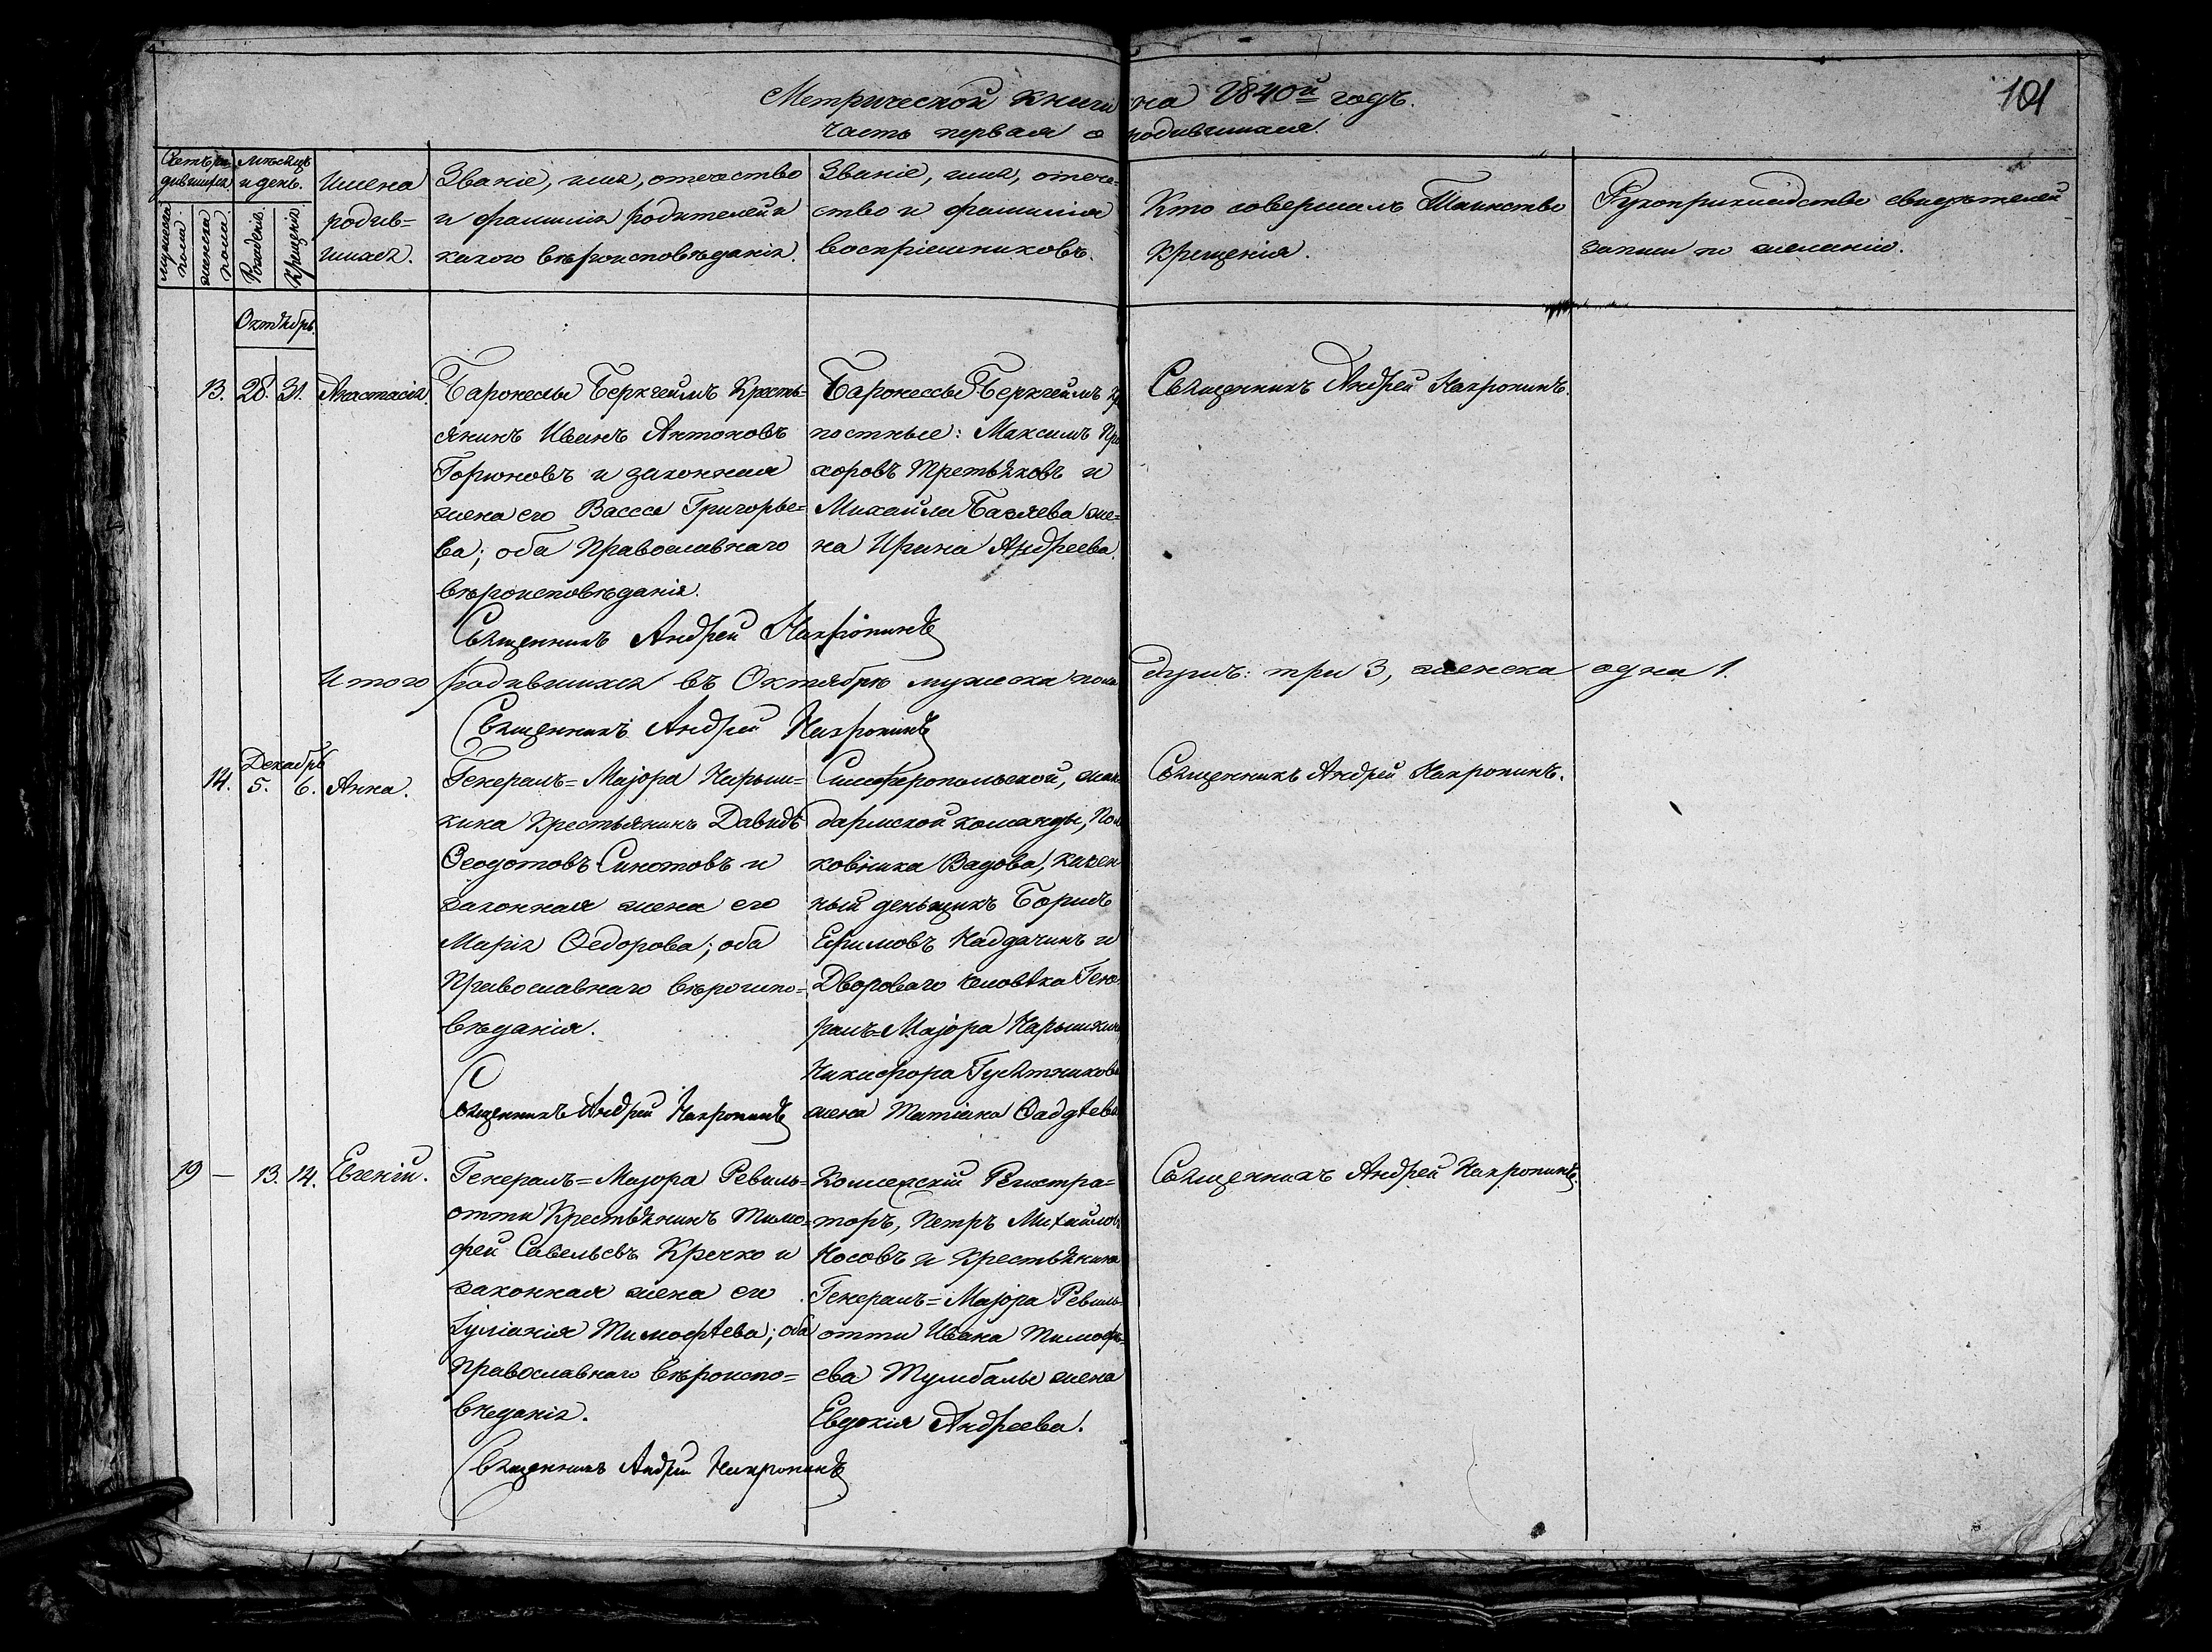 101
Метрической книги на 1840й годъ.
Часть первая о родившихся.
Счетъ ро-
дившихся
мужеска пола
женска пола
Мѣсяцъ
и день.
Рожденія.
Крещенія.
Имена
родив-
шихся.
Званіе, имя, отечество
и фамилія родителей и
какого вѣроисповѣданія.
Званіе, имя, отече-
ство и фамилія
воспріемниковъ.
Кто совершалъ Таинство
Крещенія.
Рукоприкладство свидѣтелей
записи по желанію.
Октябрь.
13. 28. 31. Анастасія.
Баронессы Беркгеймъ Кресть-
янинъ Иванъ Антоновъ
Горюновъ и законная
жена его Васса Григорье-
ва; оба Православнаго
вѣроисповѣданія.
Священникъ Андрей Нахропинъ
Баронессы Беркгеймъ
постные: Максимъ Про
хоровъ Третьяковъ и
Михайла Базяева же-
на Ирина Андреева.
Священникъ Андрей Нахропинъ.
Итого родившихся въ Октябрѣ мужеска пола душъ: три 3, женска одна 1.
Священникъ Андрей Нахропинъ
Декабрь
14. 5. 6. Анна.
Генералъ-Маіора Нарыш-
кина Крестьянинъ Давидъ
Ѳеодотовъ Синотовъ и
законная жена его
Марія Ѳедорова; оба
Православнаго вѣроиспо-
вѣданія.
Священникъ Андрей Нахропинъ
Симферопольской, жан
дармской команды, Пол
ковника Вадова, казен
ный деньщикъ Борисъ
Ефимовъ Наддачинъ и
Двороваго человѣка Гене
ралъ-Маіора Нарышкина
Никифора Гусятникова
жена Татіана Ѳаддѣева
Священникъ Андрей Нахропинъ.
19 — 13. 14. Евгеній.
Генералъ-Маіора Ревиль-
отти Крестьянинъ Тимо-
фей Савельевъ Кречко и
законная жена его
Іуліанія Тимофѣева; оба
Православнаго вѣроиспо-
вѣданія.
Священникъ Андрей Нахропинъ
Коллежскій Регистра-
торъ, Петръ Михайловъ
Носовъ и крестьянина
Генералъ-Маіора Ревиль-
отти Ивана Тимофѣ-
ева Тумбалы жена
Евдокія Андреева.
Священникъ Андрей Нахропинъ